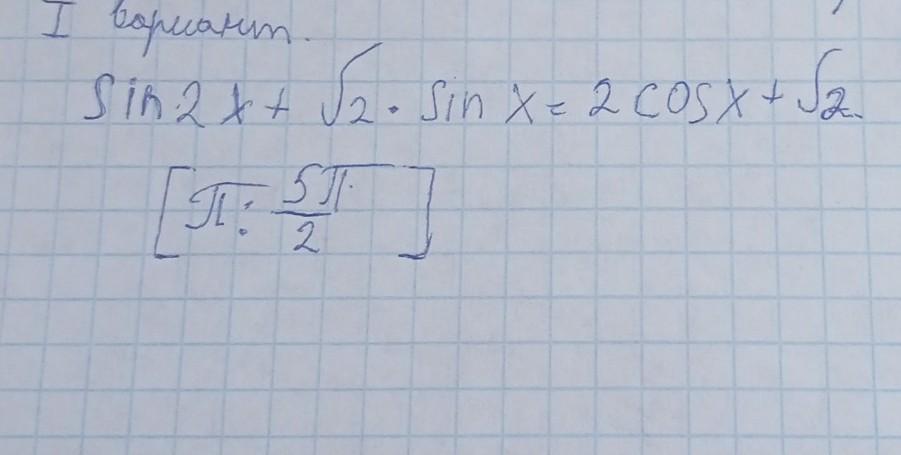 I вариант.
sin2x + √2 · sin x = 2 cos x + √2.
[π; 5π/2]